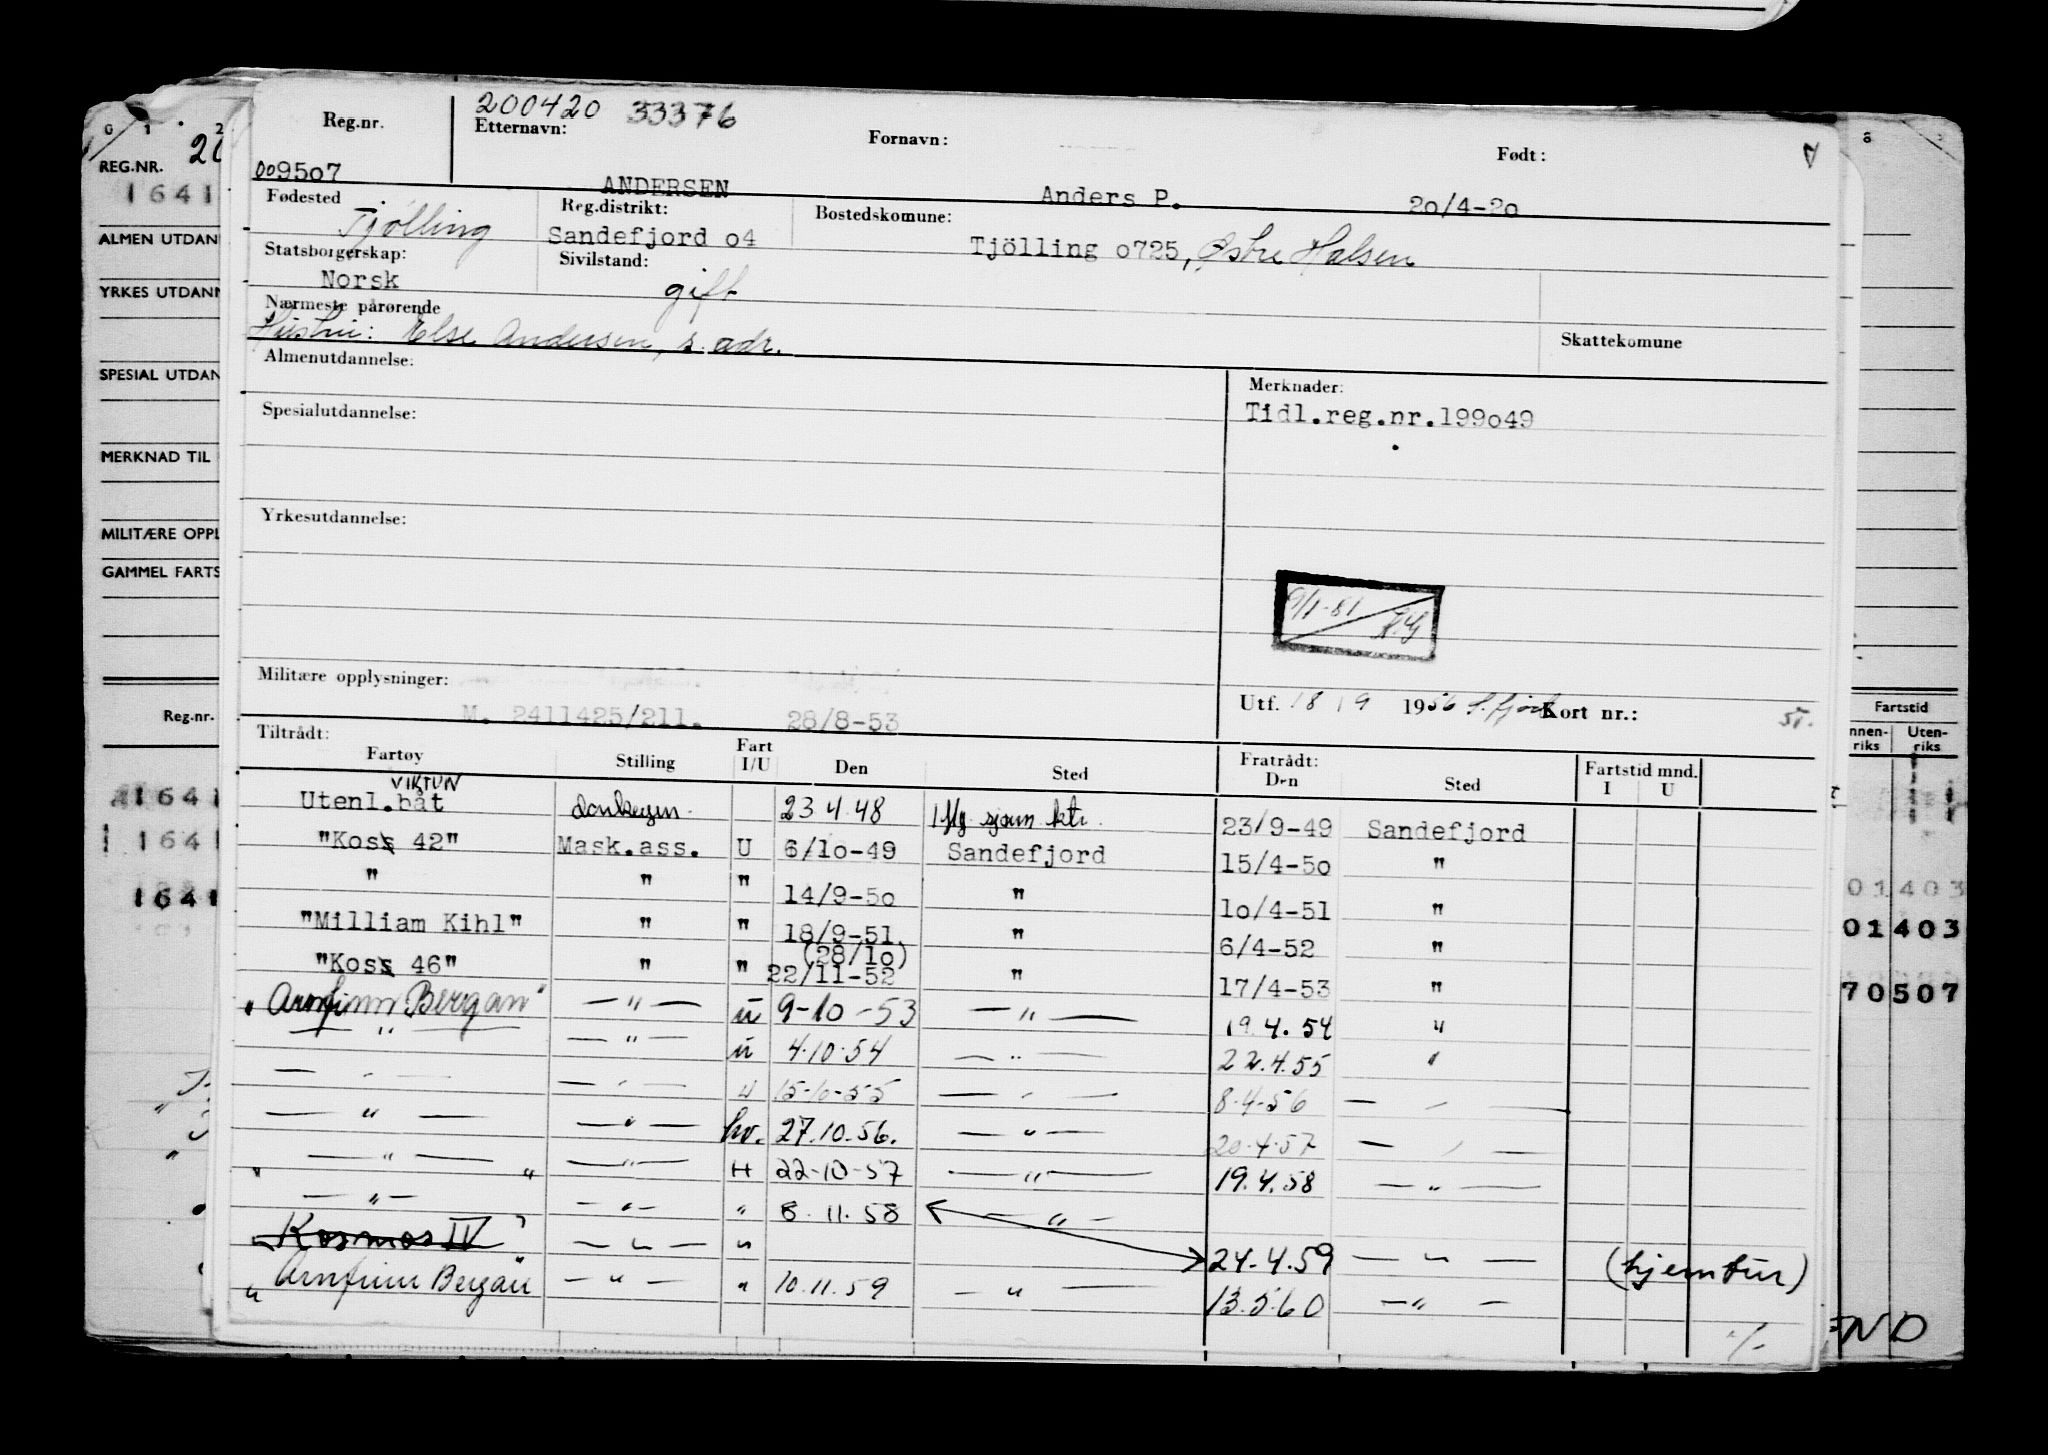 200420 33376
Reg.nr. Etternavn: Fornavn: Født:
009507 ANDERSEN Anders P. 20/4-20
Fødested Tjølling Reg.distrikt: Sandefjord o4 Bostedskomune: Tjölling o725, Østre Halsen
Statsborgerskap: Norsk Sivilstand: gift
Nærmeste pårørende Skattekomune
Hustru: Else Andersen, s. adr.
Almenutdannelse: Merknader:
Tidl.reg.nr.199o49
Spesialutdannelse:
Yrkesutdannelse:
9/1-81
Militære opplysninger:
M. 2411425/211. 28/8-53
Utf. 18 / 9 1956 S.fjord Kort nr.:
Tiltrådt: Fratrådt:
Fartøy Stilling Fart I/U Den Sted Den Sted Fartstid mnd. I U
VIKTUN
Utenl.båt donkeym. 23.4.48 23/9-49 Sandefjord
"Koss 42" Mask.ass. U 6/10-49 Sandefjord 15/4-5o "
" " " 14/9-5o " 1o/4-51 "
"Milliam Kihl" " " 18/9-51. " 6/4-52 "
(28/1o)
"Koss 46" " " 22/11-52 " 17/4-53 "
"Arnfinn Bergan" — " — u 9-10-53 — " — 19.4.54 "
— " — — " — u 4.10.54 — " — 22.4.55 "
— " — — " — u 15-10-55 — " — 8.4-56 — " —
— " — — " — hv. 27.10.56. — " — 20.4.57 — " —
" — " — " — " — H 22-10-57 — " — 19.4.58 — " —
— " — — " — " 8.11.58 — " —
"Kosmos IV" — " — " 24.4.59 — " — (hjemtur)
"Arnfinn Bergan" — " — " 10.11.59 — " — 13.5.60 — " —
0 1 2
REG.NR. 20
1641
ALMEN UTDAN
YRKES UTDANN
SPESIAL UTDAN
MERKNAD TIL
MILITÆRE OPPL
GAMMEL FARTS
Reg.-nr.
1641
1641
1641
8
Fartstid
nnen-riks Uten-riks
01403
01403
70507